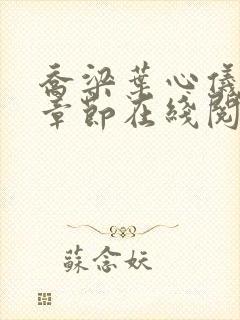 喬梁葉心儀
章節在綫閱
蘇念妖